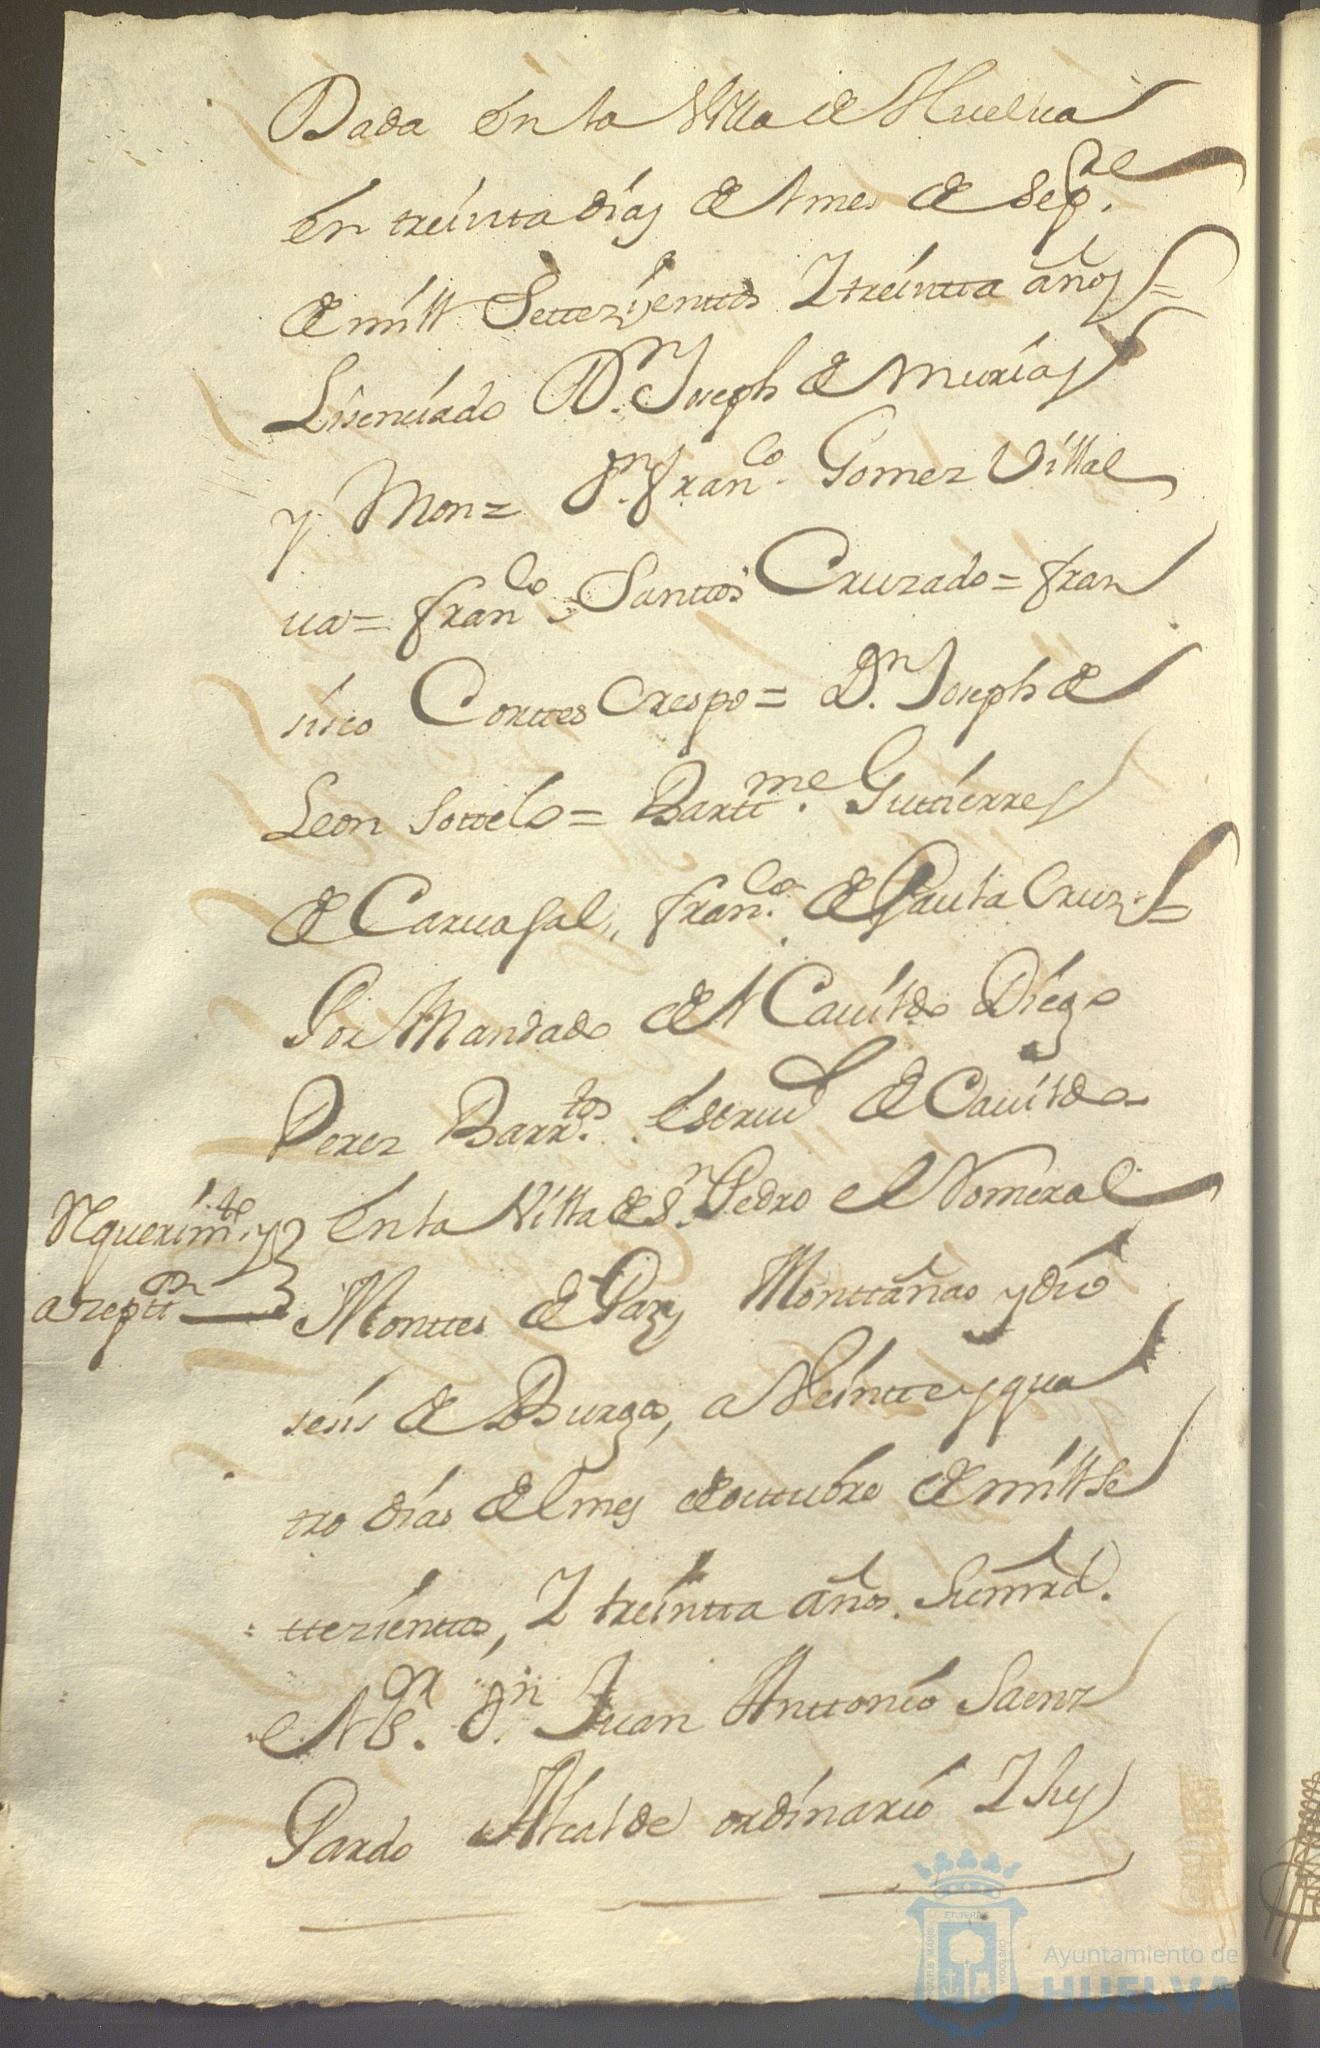 Dada en la Villa de Huelua
en treinta dias del mes de Sepre.
de mill Settezienttos Y treintta años =
Lisenciado Dn. Joseph de Murias
y Mon = Dn. Franco. Gomez Villal
ua = Franco. Santtos Cruzado = Fran
sisco Corttes Crespo = Dn. Joseph de
Leon Sottelo = Barttme. Gutierres
de Caruajal, Franco. de Paula Cruz =
Por Mandado del Cauildo Diego
Perez Barrtos. escriuo de Cauildo
Requerimto. y
azepttn
en la Villa de Sn. Pedro el Romeral
Monttes de Paz, Monttañas y dio
sesis de Burgos, a Veintte y qua
tro dias del mes de octtubre de mill se
ttezienttos, Y treintta años. Su mrd.
el Sr. Dn. Juan Anttonio Saenz
Pardo Alcalde ordinario Y Juy
Ayuntamiento de
HUELVA